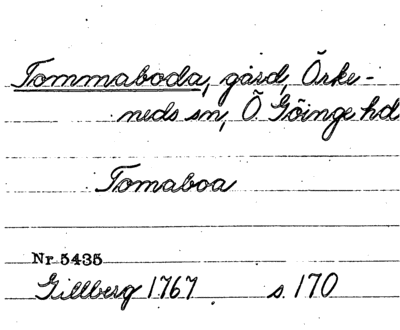 Tommaboda, gård, Örke-
neds sn, Ö. Göinge hd
Tomaboa
Nr 5435
Gillberg 1767 s 170